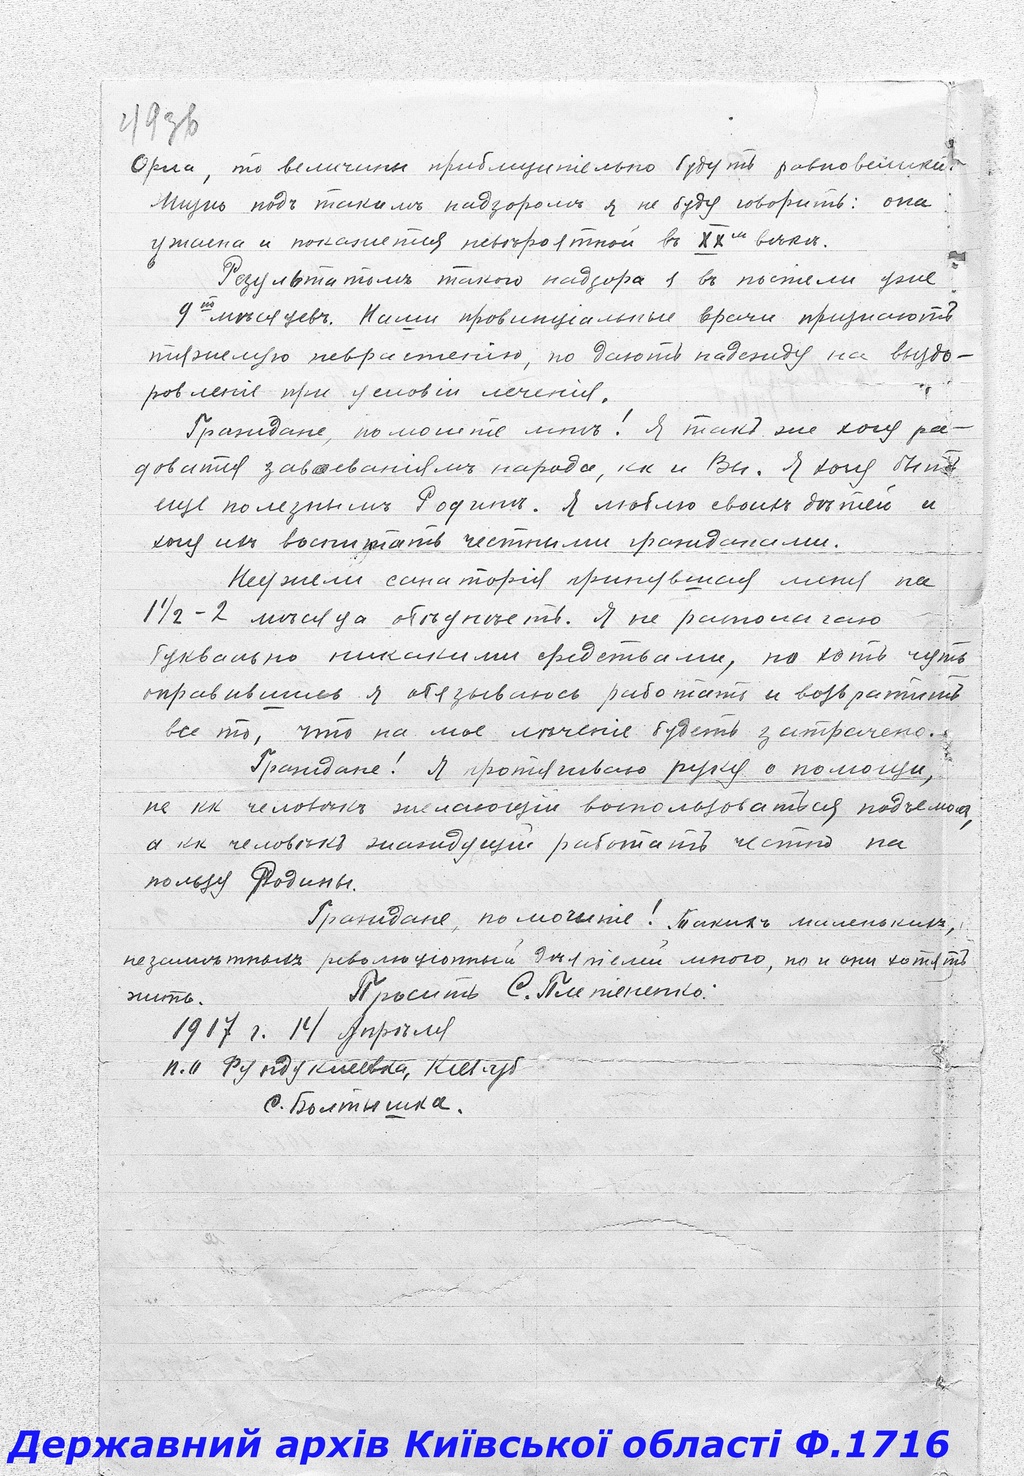 493б
Орла, то величины приблизительно будутъ равновелики.
Жизнь подъ такимъ надзоромъ я не буду говорить: она
ужасна и покажется невѣроятной въ XX м вѣкѣ.
Результатомъ такого надзора я въ постели уже
9 то мѣсяцевъ. Наши провинціальные врачи признаютъ
тяжелую неврастенію, но даютъ надежду на выздо-
ровленіе при условіи леченія.
Граждане, поможите мнѣ! Я такъ же хочу ра-
доватся завоеваніямъ народа, кк и Вы. Я хочу быть
еще полезнымъ Родинѣ. Я люблю своихъ дѣтей и
хочу ихъ воспитать честными гражданами.
Неужели санаторія принувшая меня на
1 1/2 - 2 мѣсяца обѣднѣетъ. Я не располагаю
буквально никакими средствами, но хоть чуть
оправившись я обязываюсь работать и возвратить
все то, что на мое лѣченіе будетъ затрачено.
Граждане! Я протягиваю руку о помощи,
не кк человѣкъ желающій воспользоваться подъемом,
а кк человѣкъ жаждущій работать честно на
пользу Родины.
Граждане, поможите! Такихъ маленькихъ,
незамѣтныхъ революціонный дѣятелей много, но и они хотятъ
жить. Проситъ С. Плетененко.
1917 г. 14 Апрѣля
п.о Фундуклеевка, Кіев. губ
С. Болтышка.
Державний архів Київської області Ф.1716